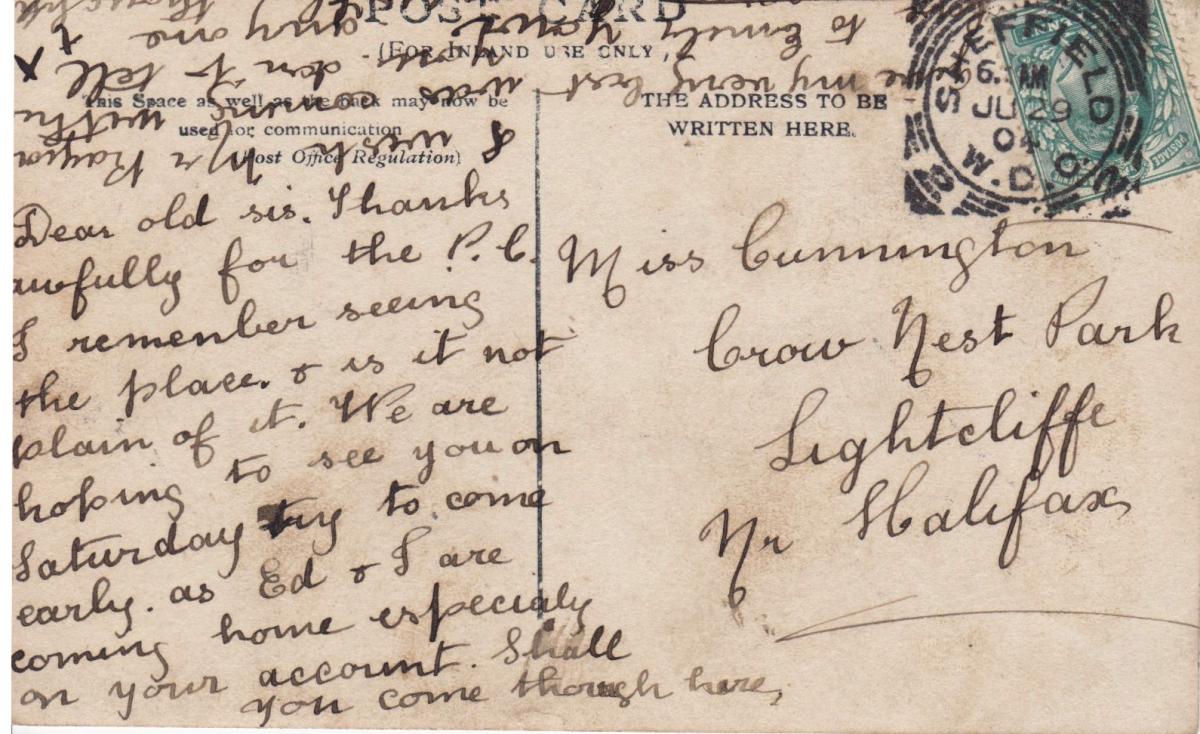 POST CARD
(FOR INLAND USE ONLY.)
This Space as well as the back may now be
used for communication
(Post Office Regulation)
THE ADDRESS TO BE
WRITTEN HERE.
SHEFFIELD
6. AM
JU 29
04
W.D.O.
POSTAGE
Dear old sis. Thanks
awfully for the P.C.
I remember seeing
the place. & is it not
plain of it. We are
hoping to see you on
Saturday try to come
early. as Ed & I are
coming home especialy
on your account. Shall
you come though here,
I wish Mr
was coming with
you don't tell
any one
my very best
to Emily
Miss Cunnington
Crow Nest Park
Lightcliffe
Nr Halifax